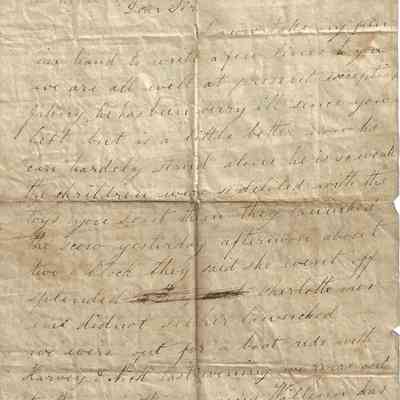 Dear Sir
I now take my pen
in hand to write a few lines to you
we are all well at present excepting
he has been verry ill since you
left but is a little better now he
can hardely stand alone he is so weak
the children were so delited with the
toys you sent them they launched
the scow yesterday afternoon about
two o clock they said she went off
splended Charlotte nor
didnot see her launched
we were out for a boat ride with
Harvey & last evening we